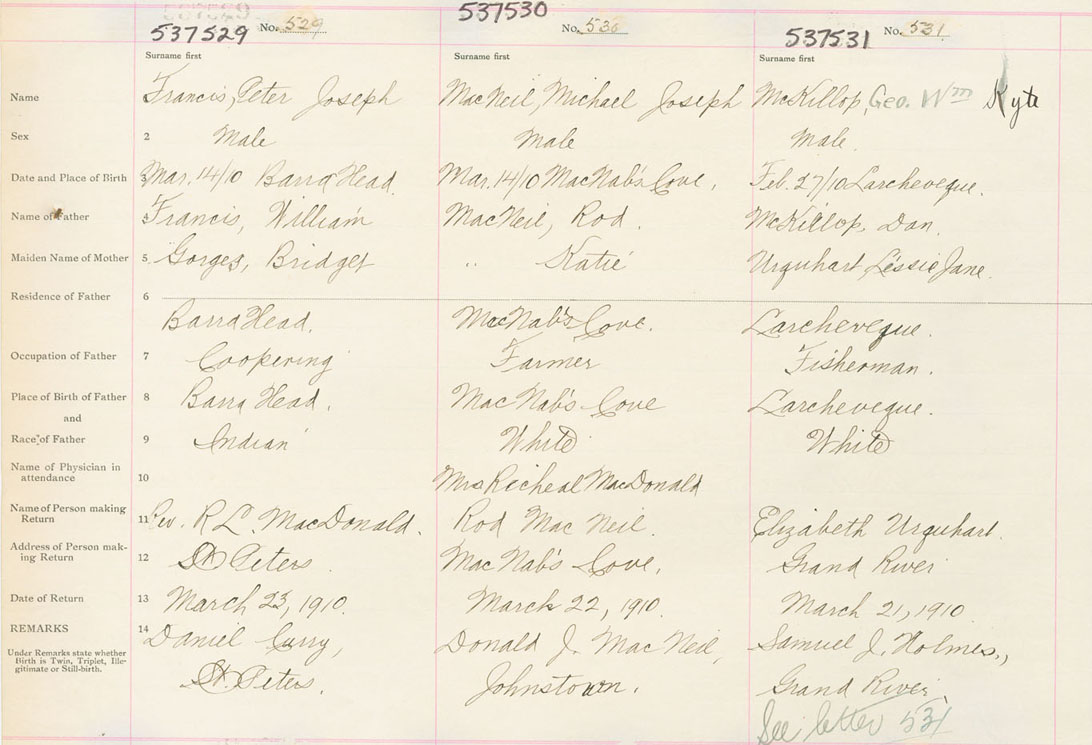 537529 No. 529
537530 No. 530
537531 No. 531
Surname first Surname first Surname first
Name Francis, Peter Joseph MacNeil, Michael Joseph McKillop, Geo. Wm Kyte
Sex 2 Male Male Male.
Date and Place of Birth 3 Mar. 14/10 Barra Head. Mar. 14/10 MacNab's Cove, Feb. 27/10 Larcheveque.
Name of Father 4 Francis, William MacNeil, Rod. McKillop, Dan.
Maiden Name of Mother 5 Gorges, Bridget " Katie Urquhart Lessie Jane.
Residence of Father 6
Barra Head. MacNab's Cove. Larcheveque.
Occupation of Father 7 Coopering Farmer Fisherman.
Place of Birth of Father 8 Barra Head. MacNab's Cove Larcheveque.
and
Race of Father 9 Indian White White
Name of Physician in
attendance 10 Mrs Richeal MacDonald
Name of Person making
Return 11 Rev. R L. MacDonald. Rod Mac Neil. Elizabeth Urquhart.
Address of Person mak-
ing Return 12 St Peters. MacNab's Cove, Grand River
Date of Return 13 March 23, 1910. March 22, 1910. March 21, 1910
REMARKS 14 Daniel Curry, Donald J. MacNeil, Samuel J. Holmes,,
Under Remarks state whether
Birth is Twin, Triplet, Ille-
gitimate or Still-birth.
St. Peters. Johnstown. Grand River.
See letter 531